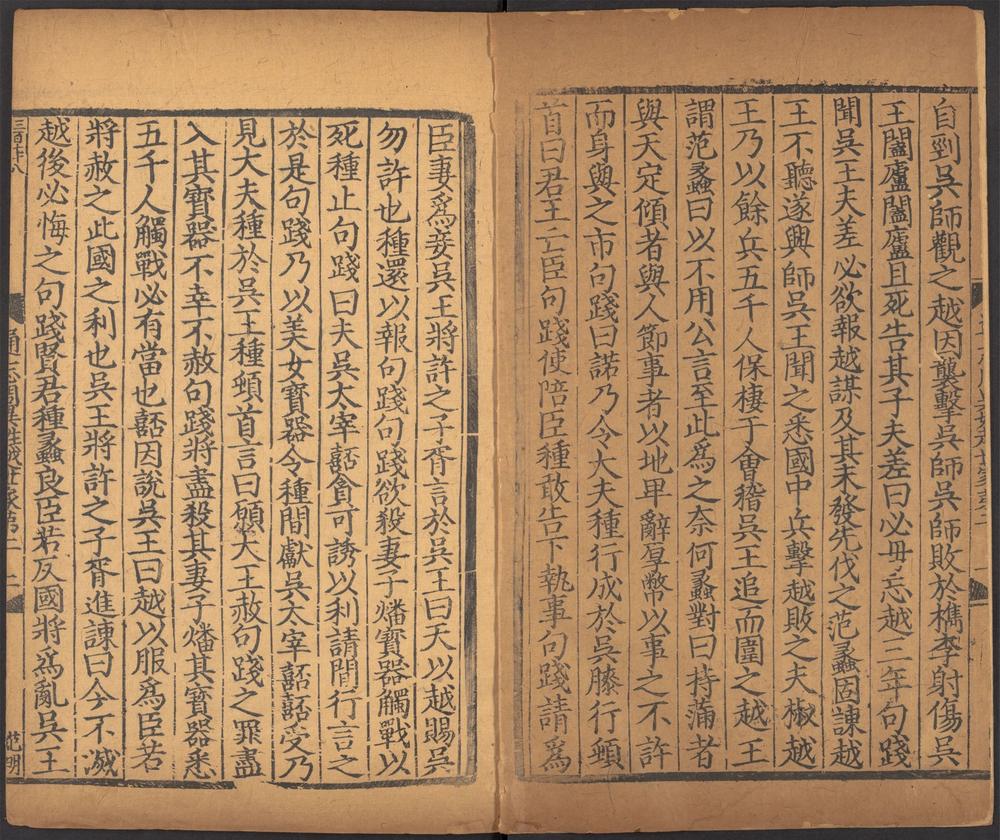 自剄吳師觀之越因襲擊吳師吳師敗於檇李射傷吳
王闔廬闔廬且死告其子夫差曰必毋忘越三年句踐
聞吳王夫差必欲報越謀及其未發先伐之范蠡固諫越
王不聽遂興師吳王聞之悉國中兵擊越敗之夫椒越
王乃以餘兵五千人保棲于會稽吳王追而圍之越王
謂范蠡曰以不用公言至此爲之奈何蠡對曰持滿者
與天定傾者與人節事者以地卑辭厚幣以事之不許
而身與之市句踐曰諾乃令大夫種行成於吳膝行頓
首曰君王亡臣句踐使陪臣種敢告下執事句踐請爲
臣妻爲妾吳王將許之子胥言於吳王曰天以越賜吳
勿許也種還以報句踐句踐欲殺妻子燔寶器觸戰以
死種止句踐曰夫吳太宰嚭貪可誘以利請間行言之
於是句踐乃以美女寶器令種間獻吳太宰嚭嚭受乃
見大夫種於吳王種頓首言曰願大王赦句踐之罪盡
入其寶器不幸不赦句踐將盡殺其妻子燔其寶器悉
五千人觸戰必有當也嚭因說吳王曰越以服爲臣若
將赦之此國之利也吳王將許之子胥進諫曰今不滅
越後必悔之句踐賢君種蠡良臣若反國將爲亂吳王
三百十八
范明